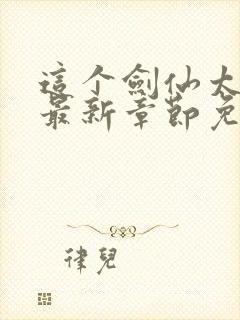 這个劍仙太
最新章節免
律兒